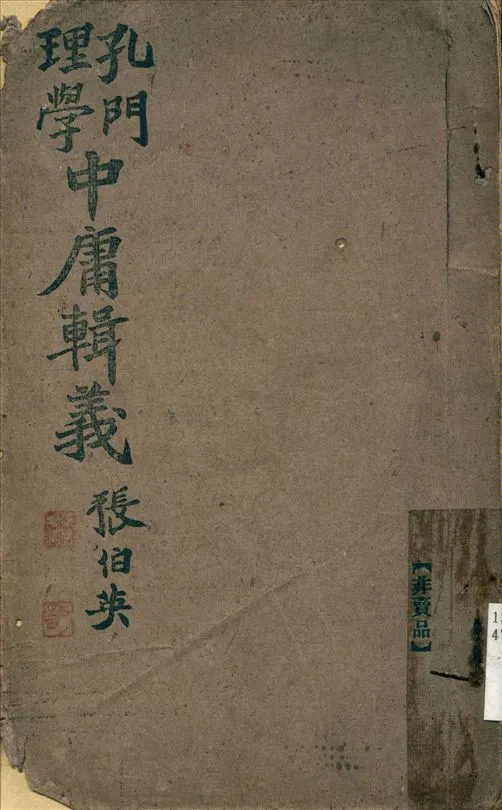 【非賣品】
孔門
理學
中庸輯義
張伯英